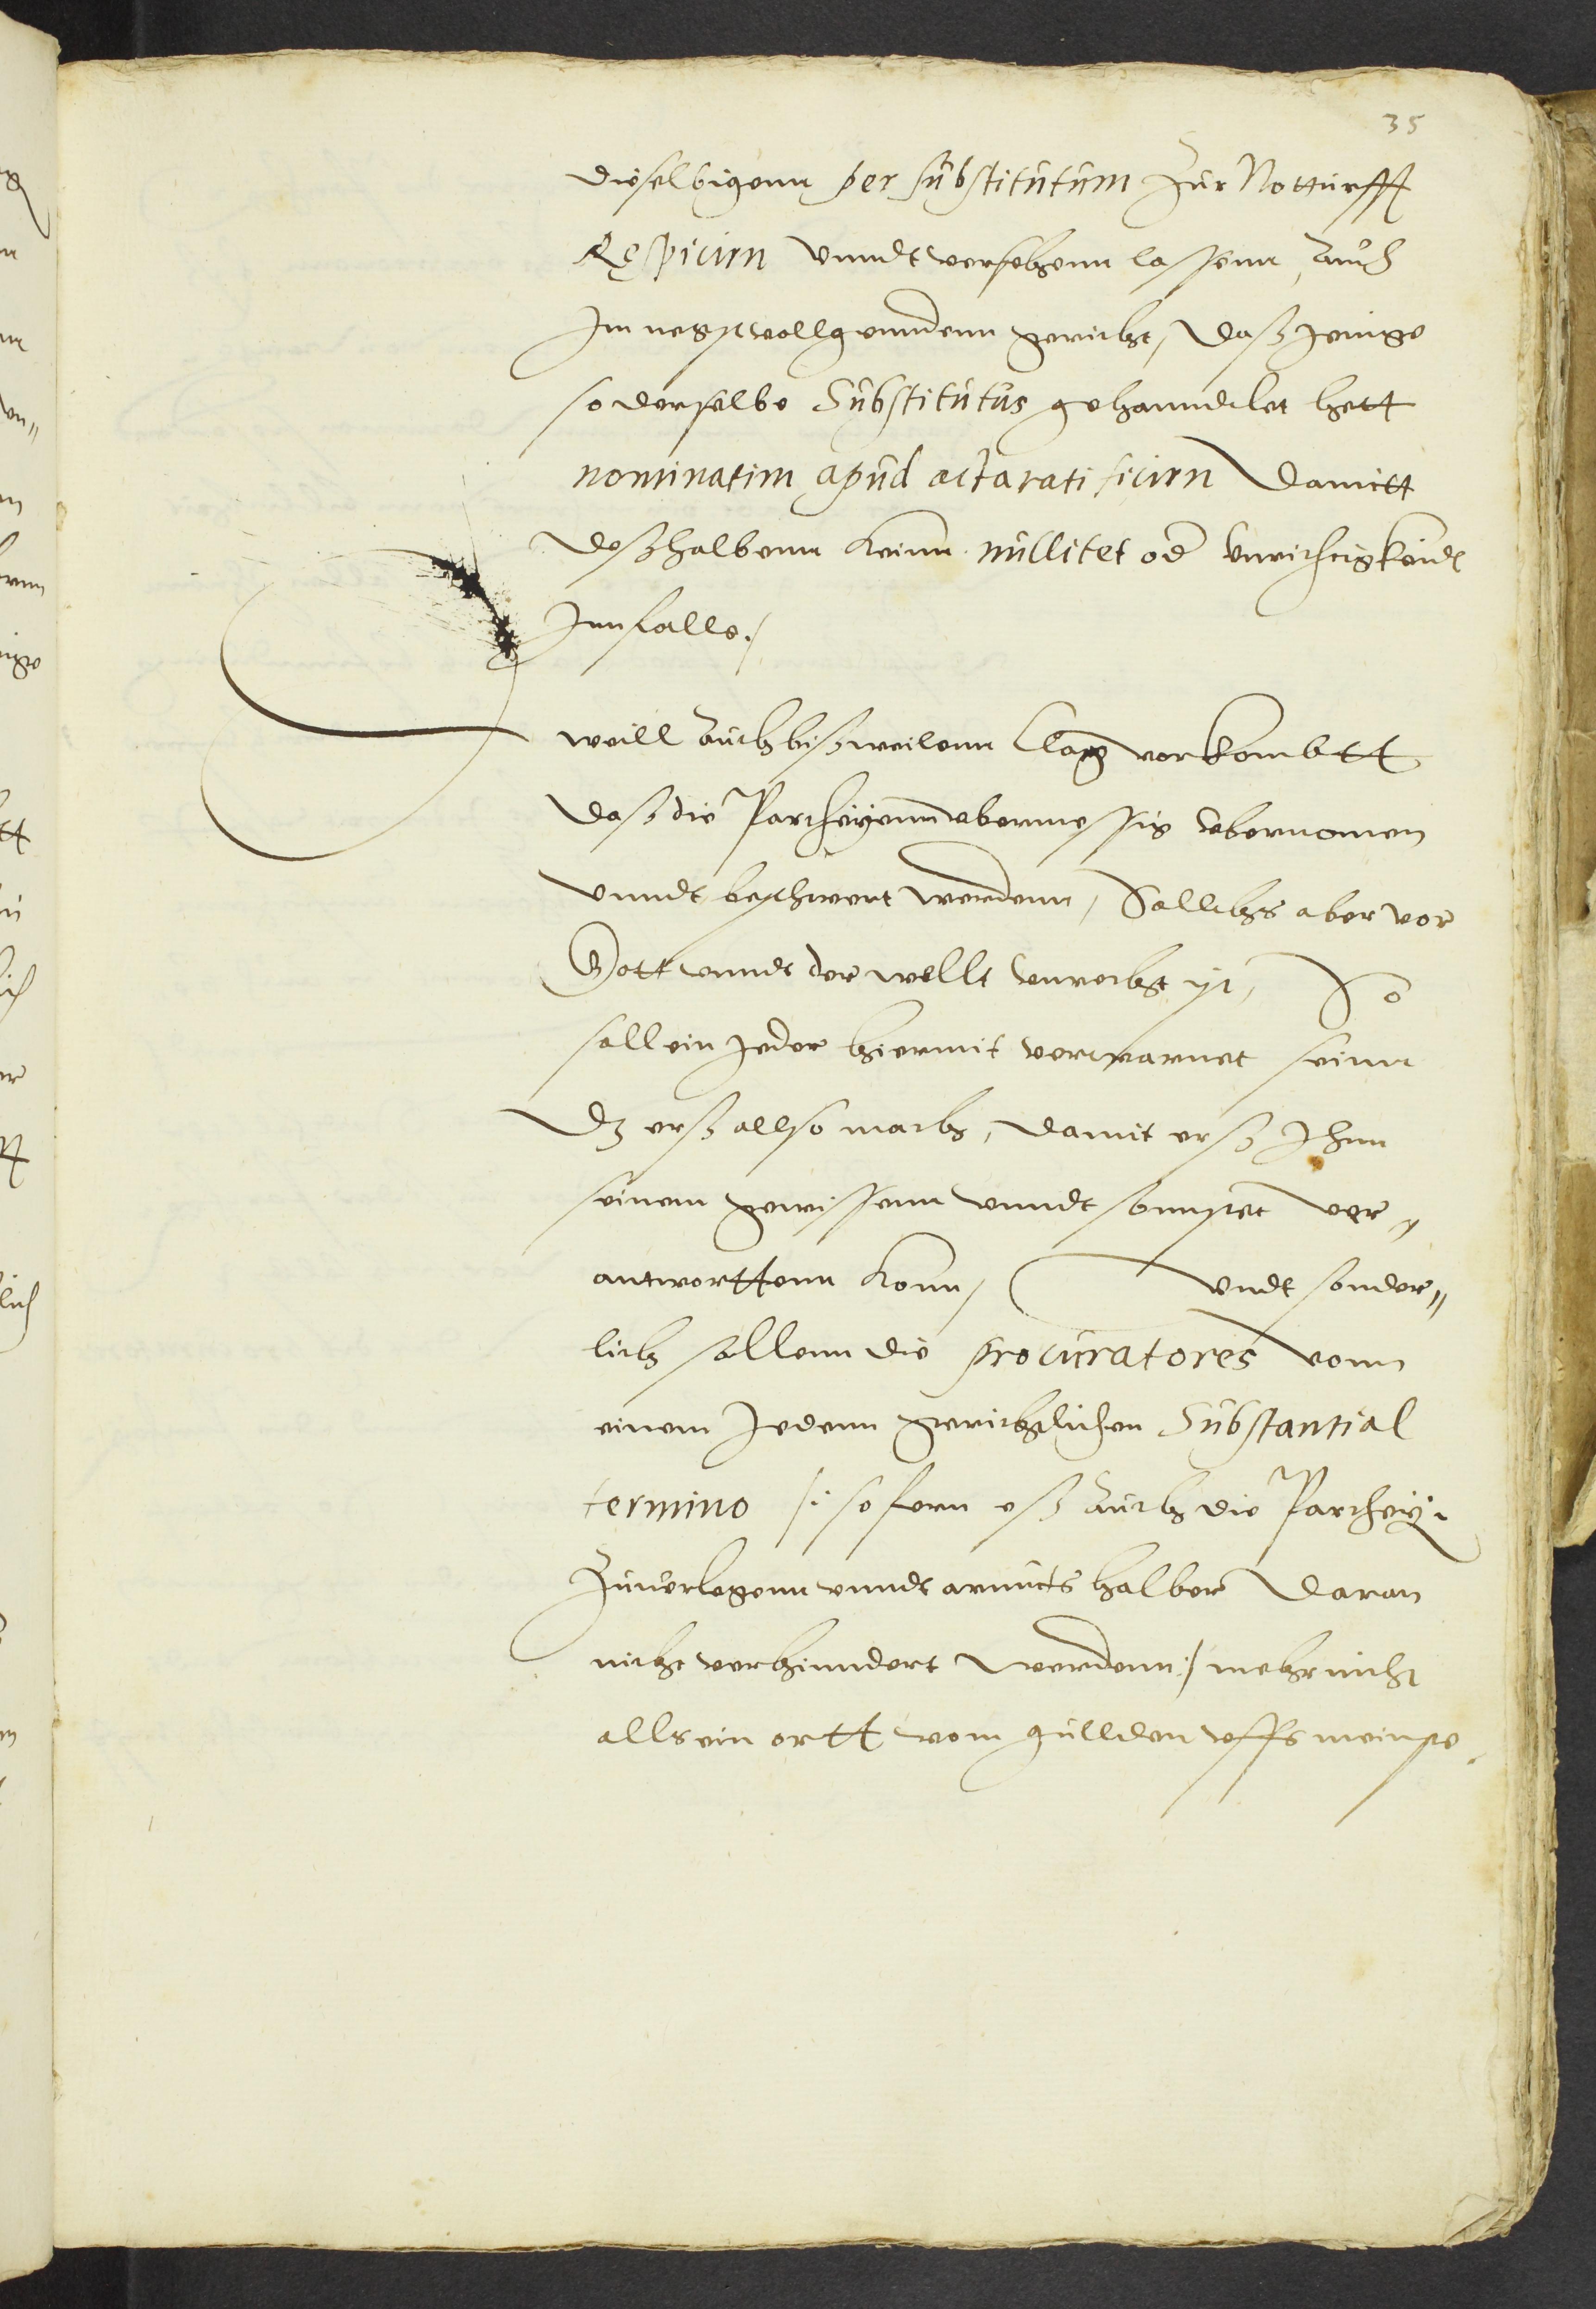 35
dieselbigenn per substitutum zur Notturfft
Respicirn vnndt versehenn lassenn, auch
Im negstvollgenndenn gericht, daß Jenige
so derselbe Substitutus gehanndlet hett
nominatim apud acta ratificirn damitt
deßhalbenn keinn nullitet od Vnrichtigkeidt
Innfalle./
weill auch bißweilenn Clag vorkombtt
daß die Partheyenn vbermessig vbernomen
vnndt beschwert werdenn, Sollichs aber vor
Gott vnndt der wellt vnrecht ist, So
soll ein Jeder hiermit verwarnet seinn
dz erß allso mach, damit erß Jhnn
seinem gewissenn vnndt sonnstet ver„
antworttenn konn, Vndt sonder„
lich sollenn die procuratores vonn
einem Jedenn gerichtlichen Substantial
termino /: so fern eß auch die Parthey
zuuerlegenn vnndt armuts halber daran
nicht verhinndert werdenn :/ mehr nicht
alls ein ortt vom gullden vffs meinste.